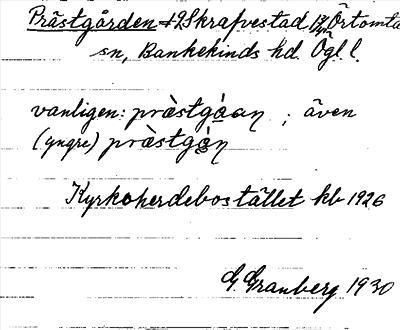 Prästgården Skrapvestad Örtomta
sn, Bankekinds hd. Ögl.
vanligen: prästgåan ; även
(yngre) prästgån
Kyrkoherdebostället kb 1926
G. Granberg 1930